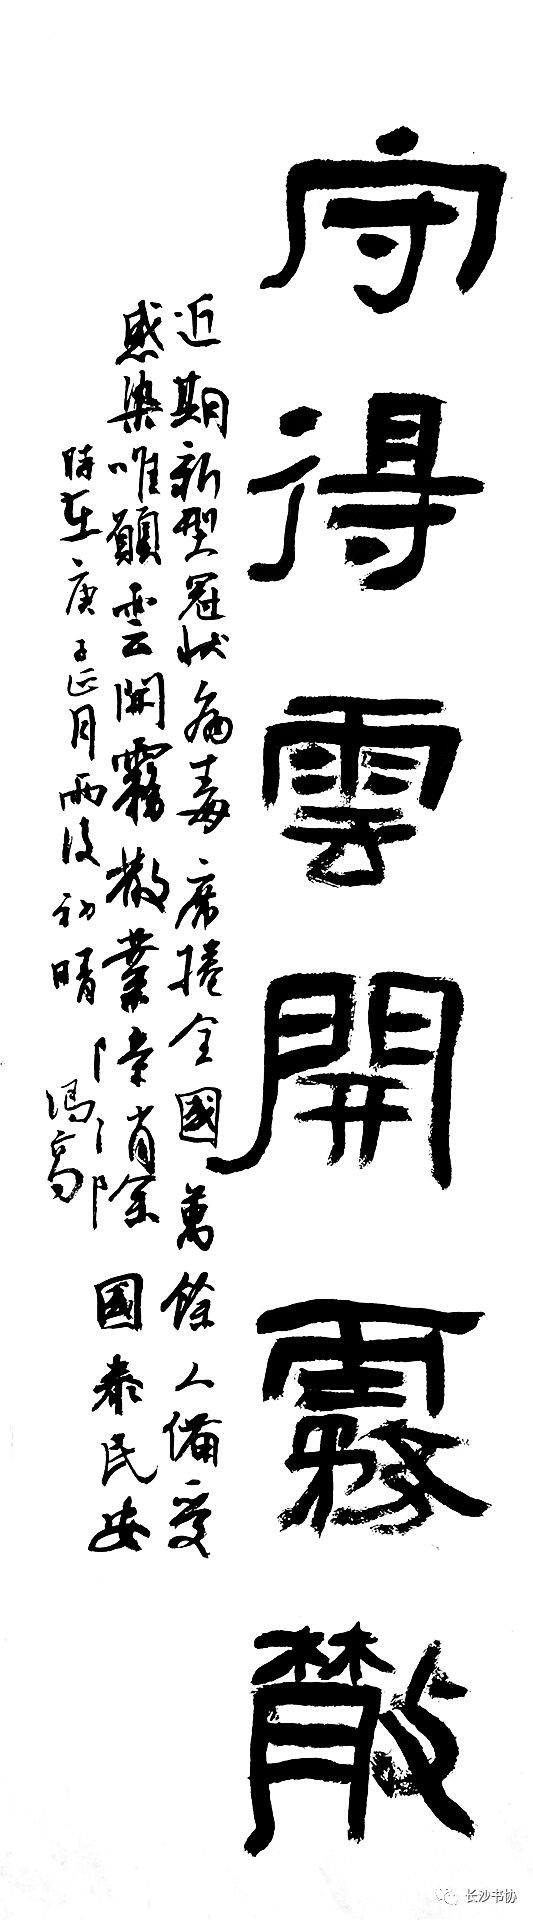 守得雲開霧散
近期新型冠狀病毒席捲全國萬餘人備受
感染唯願雲開霧散業障消除國泰民安
時在庚子正月雨後初晴
长沙书协